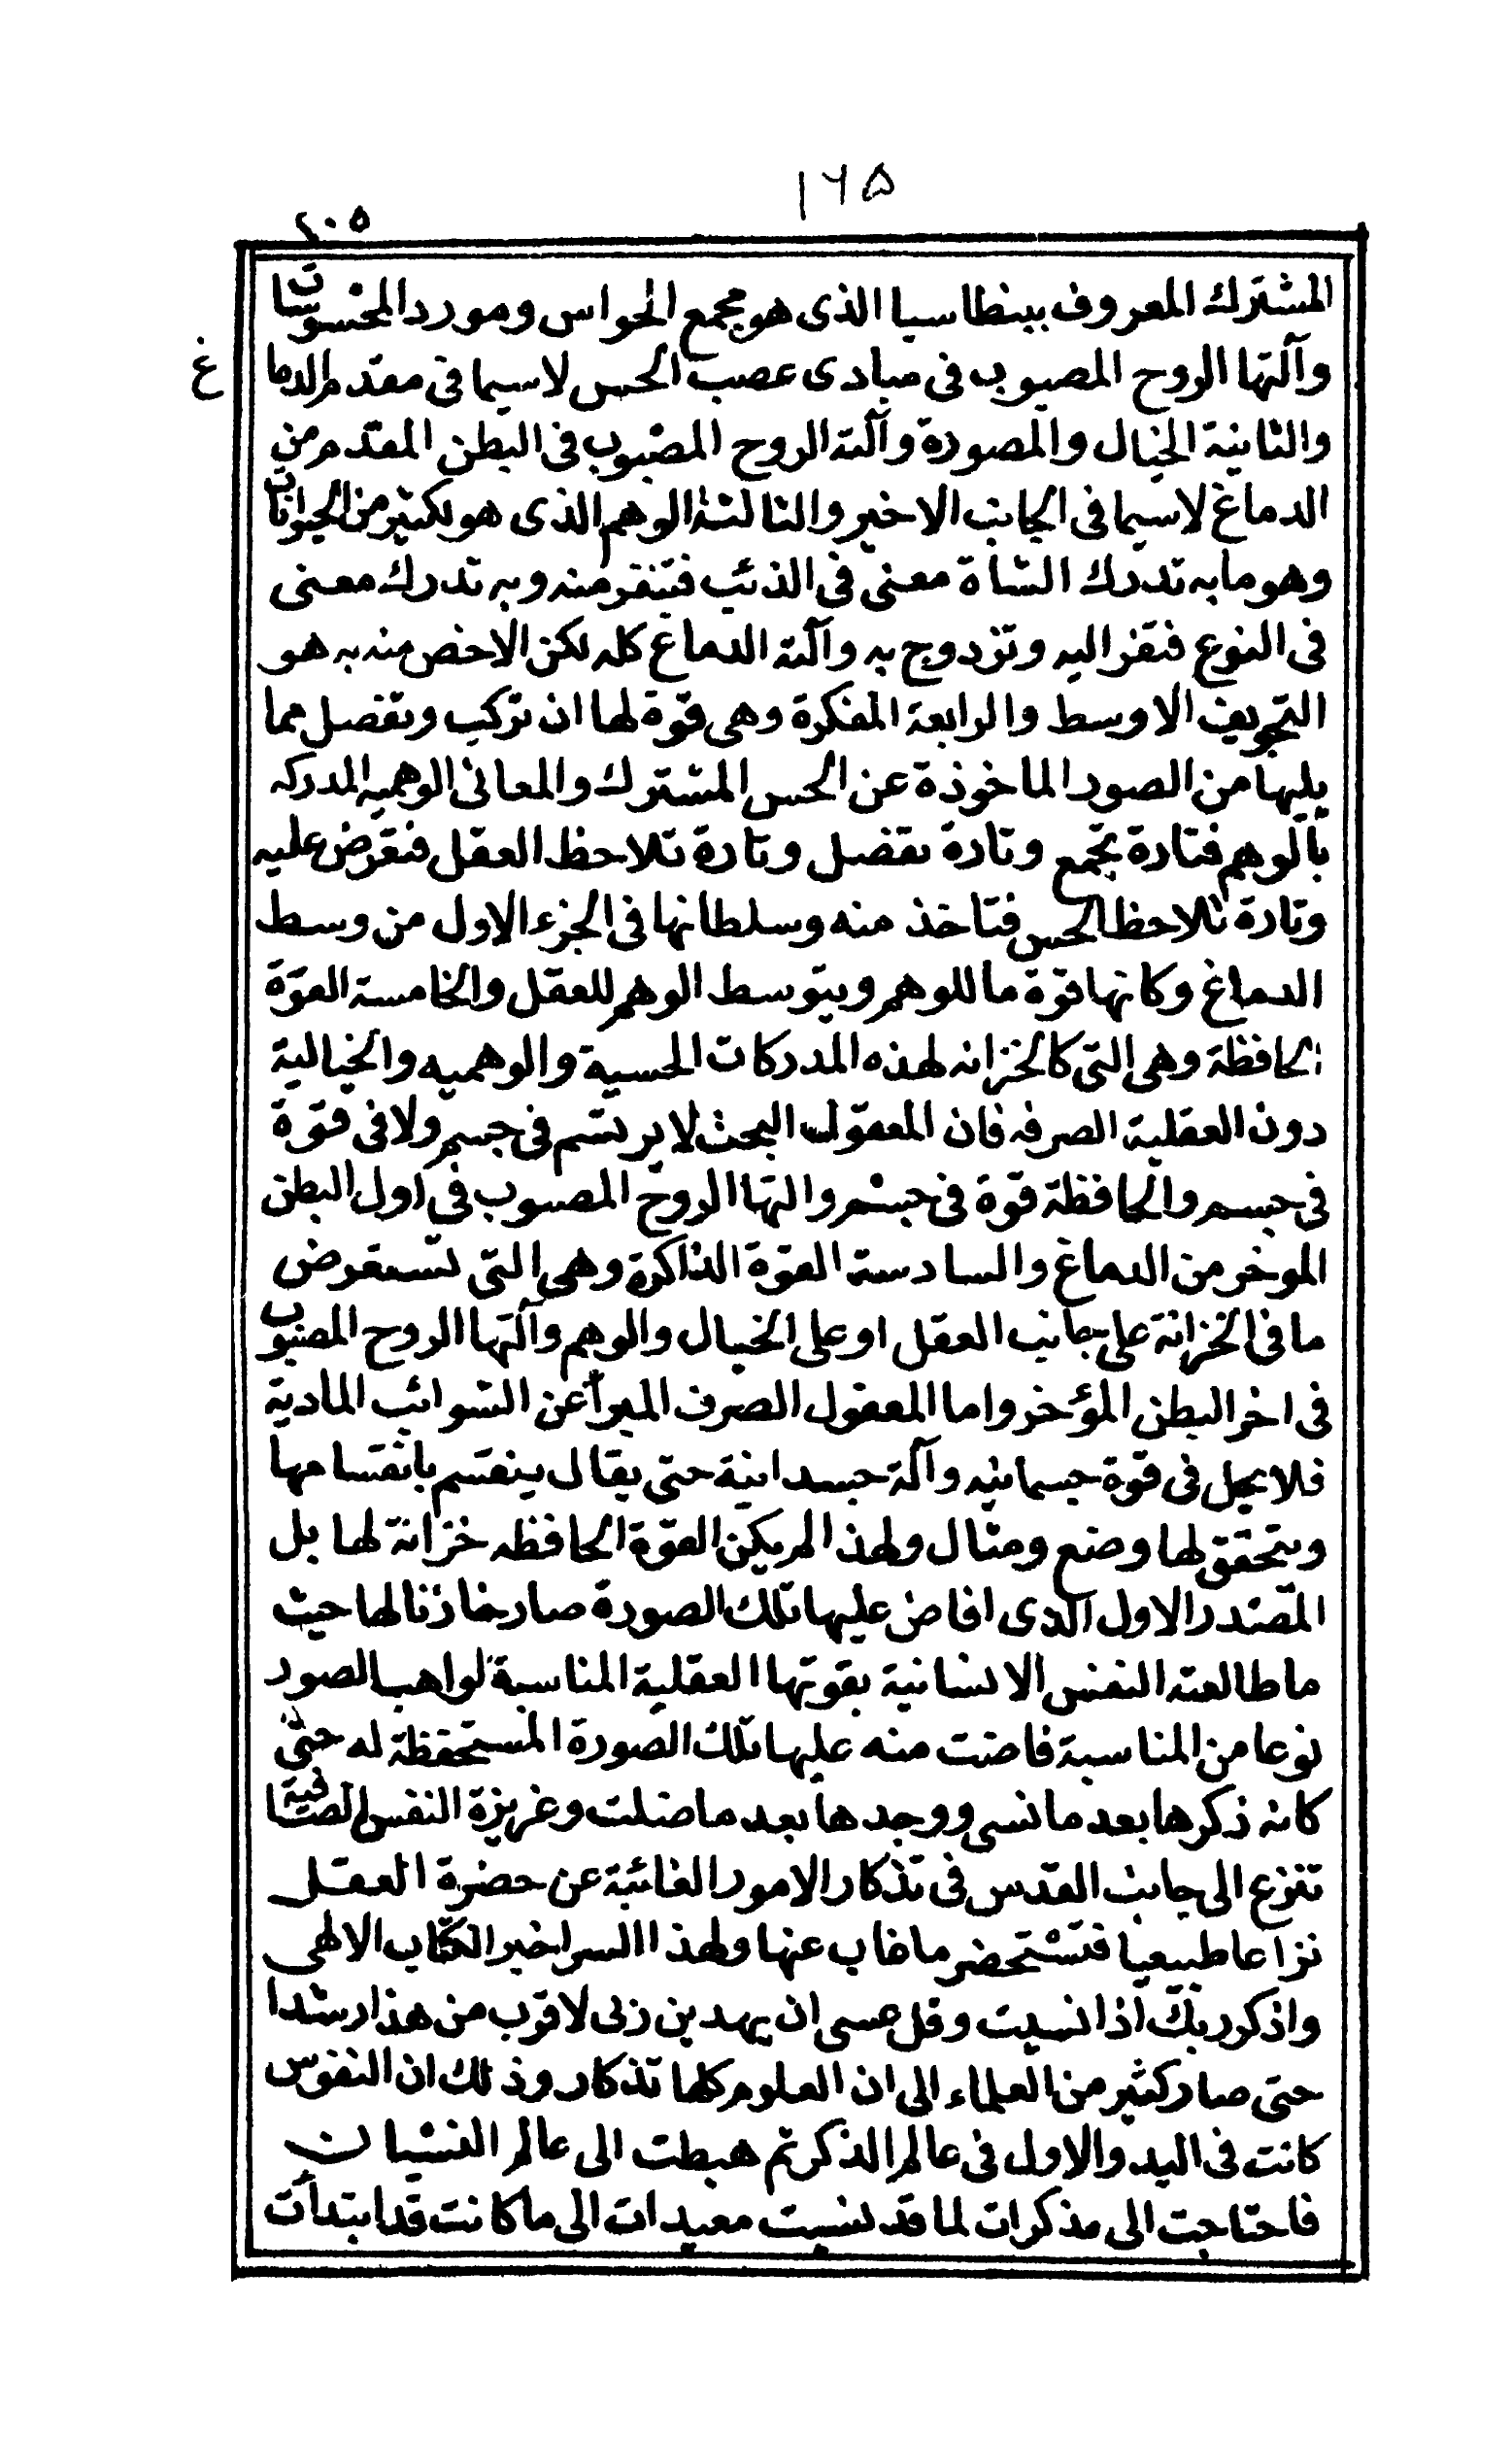 ۱۶۵
٤٠٥
المشترك المعروف ببنطاسيا الذى هو مجمع الحواس ومورد المحسوسات
وآلتها الروح المصبوب فى مبادى عصب الحس لاسيما فى مقدم الدماغ
والثانية الخيال والمصورة وآلته الروح المصبوب فى البطن المقدم من
الدماغ لاسيما فى الجانب الاخير والثالثة الوهم الذى هو لكثير من الحيوانات
وهو ما به تدرك الشاة معنى فى الذئب فتنفر منه وبه تدرك معنى
فى النوع فتقز اليه وتزدوج به وآلته الدماغ كله لكن الاخص منه به هو
التجويف الاوسط والرابعة المفكرة وهى قوة لها ان تركب وتفصل مما
يليها من الصور الماخوذة عن الحس المشترك والمعانى الوهميه المدركه
بالوهم فتارة تجمع وتارة تفصل وتارة تلاحظ العقل فتعرض عليه
وتارة تلاحظ الحس فتاخذ منه وسلطانها فى الجزء الاول من وسط
الدماغ وكانها قوة ما للوهم وبتوسط الوهم للعقل والخامسة القوة
الحافظة وهى التى كالخزانه لهذه المدركات الحسية والوهميه والخيالية
دون العقلية الصرفه فان المعقول البحث لا يرتسم فى جسم ولا فى قوة
فى جسم والحافظة قوة فى جسم والتها الروح المصبوب فى اول البطن
الموخر من الدماغ والسادسة القوة الذاكرة وهى التى تستعرض
ما فى الخزانة على جانب العقل او على الخيال والوهم وآلتها الروح المصبوب
فى اخر البطن المؤخر واما المعقول الصرف المبرأ عن الشوائب المادية
فلا يحل فى قوة جسمانيه وآلة جسدانية حتى يقال ينقسم بانقسامها
ويتحقق لها وضع ومثال ولهذا لم يكن القوة الحافظه خزانة لها بل
المصدر الاول الذى افاض عليها تلك الصورة صار خازنا لها حيث
ما طالعته النفس الانسانية بقوتها العقلية المناسبة لواهب الصور
نوعا من المناسبة فاضت منه عليها تلك الصورة المستحفظة له حتى
كانه ذكرها بعد ما نسى ووجدها بعد ما ضلت وغريزة النفس الصافية
تنزع الى جانب القدس فى تذكار الامور الغائبة عن حضرة العقل
نزاعا طبيعيا فتستحضر ما غاب عنها ولهذا السر اخبر الكتاب الالهى
واذكر ربك اذا نسيت وقل عسى ان يهدين ربى لاقرب من هذا رشدا
حتى صار كثير من العلماء الى ان العلوم كلها تذكار وذلك ان النفوس
كانت فى البدو الاول فى عالم الذكر ثم هبطت الى عالم النسيان
فاحتاجت الى مذكرات لما قد نسيت معيدات الى ما كانت قد ابتدأت